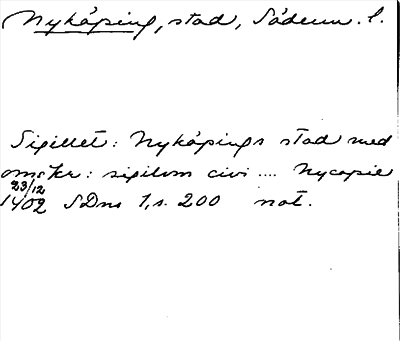 Nyköping, stad, Söderm. l.
Sigillet: Nyköpings stad med
omskr: sigilom civi .... Nycopie
23/12
1402 SDns 1, s. 200 not.